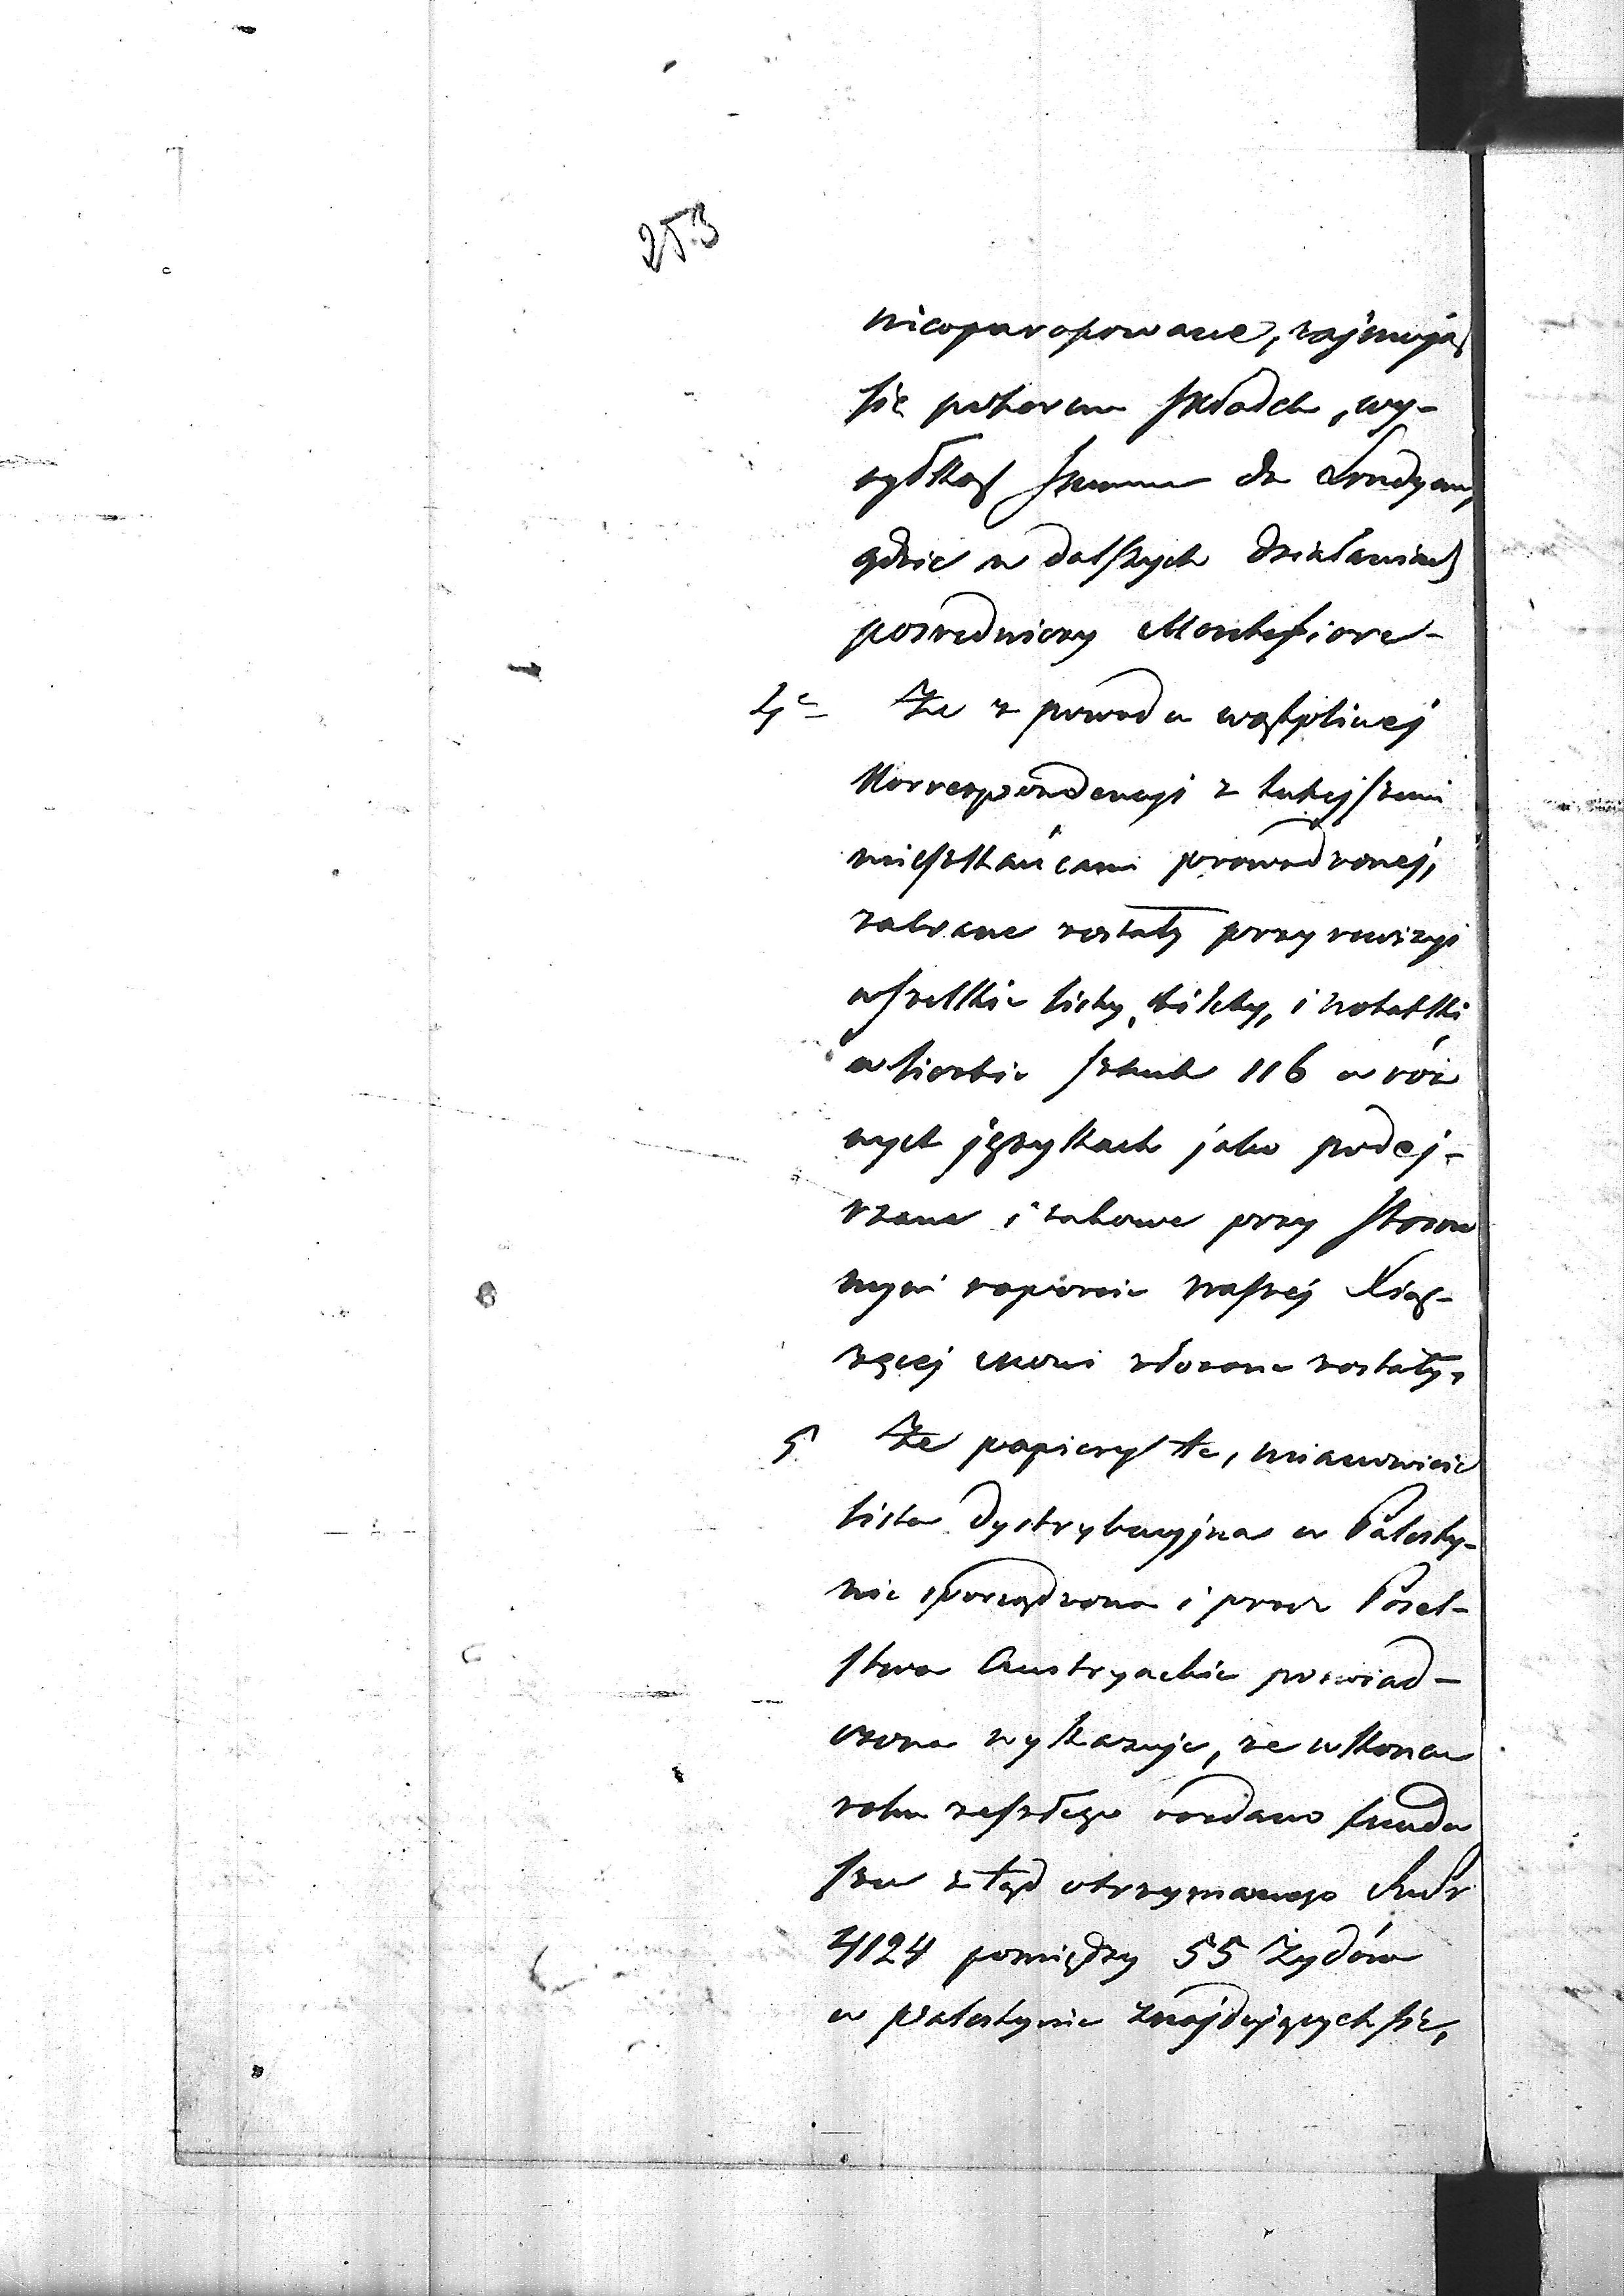 253
nieoparafowane, zajmują
się poborem składek, wy-
syłką summ do Londynu,
gdzie w dalszych działaniach
posredniczy Montefiore -
4e Że z powodu wątpliwej
Korrespondencyi z tutejszemi
mieszkańcami prowadzonej,
zabrane zostały przy rewizyi
wszelkie listy, bilety, i notatki
w liczbie sztuk 116 w róż
nych językach jako podej-
rzane i takowe przy stosow
nym raporcie Waszej Xiąż-
zęcej Mości złożone zostały.
5 Że papiery te, mianowicie
lista dystrybucyjna w Palesty-
nie sporządzona i przez Posel-
stwo Austryackie poswiad-
czona wykazuje, że w końcu
roku zeszłego rozdano fundu
szu z tąd otrzymanego Rubr
4124 pomiędzy 55 Żydów
w Palestynie znajdujących się,